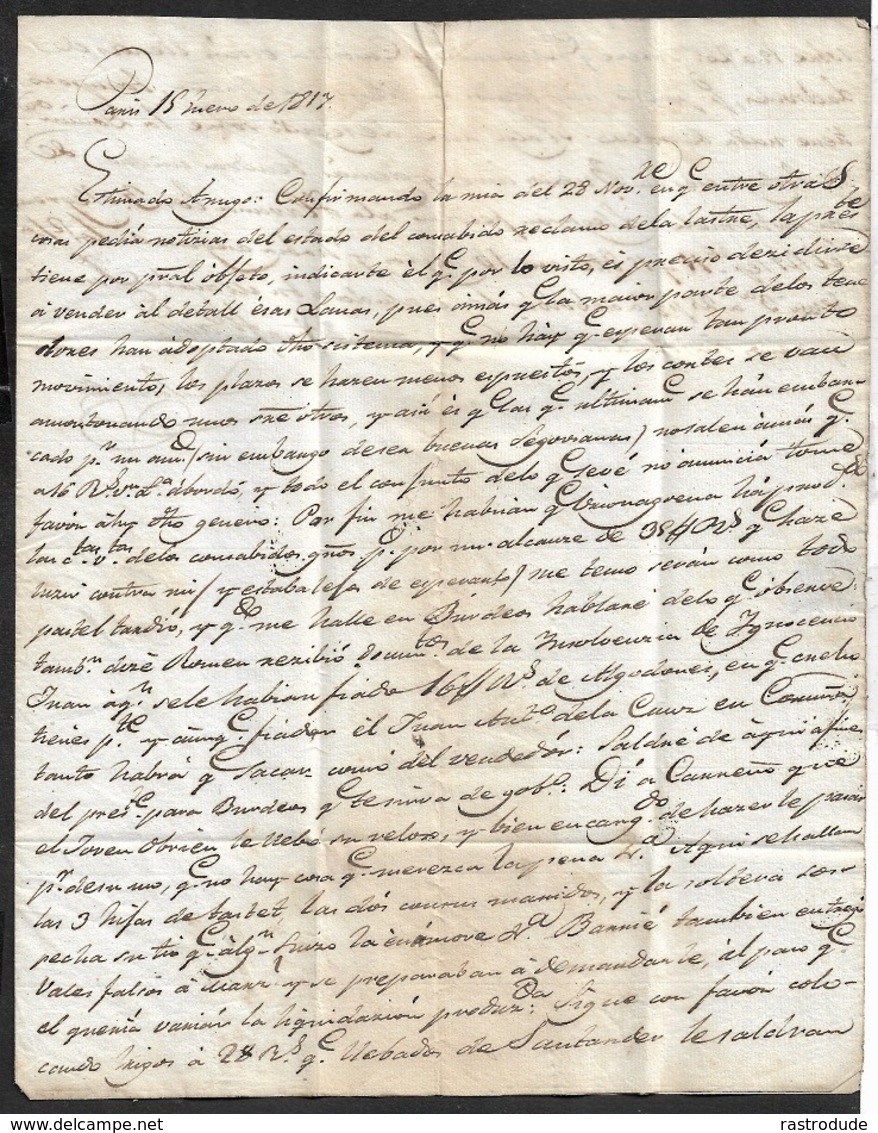 Paris 15 Enero de 1817.
Estimado Amigo: Confirmando la mia del 28 Nov.e en q.e entre otras
cosas pedía noticias del estado del consabido reclamo de la lastre, la pres.te
tiene por pral objeto, indicarte èl q.e por lo visto, és preciso dezidirse
à vender àl detall ésas Lanas, pues ámás q.e la maior parte delos tene
dores han àdoptado dho sistema, y q.e no hay q.e esperar tan pronto
movimiento, los plazos se hazen menos espuestos, y los costes se van
amontonando unos sre otros, y asi és q.e las q.e ultimam.e se hán embar-
cado p.r mi am.o (sin embargo deser buenas Segovianas) nosalen àmás q.e
a 16 R.s v.n L.a àbordo, y todo el conjunto delo q.e sevé no anuncia tome
favor àhy dho genero: Por fin me habrian q.e
las c.tas v.tas delos consabidos por mi alcanze de 38// R.s q.e haze
luzir contra mi (y estaba lejos de esperarlo) me temo serán como todo
pastel tardío, y q.do me halle en Burdeos hablaré delo q.e observe:
tamb.n dizé Romeu rezibió docum.tos de la Insolvenzia de Ygnocencio
Juan à q.n sele habian fiado 16// R.s de Algodones, en q.e
tienes p.te y àunq.e fiador él Juan Ant.o dela Cruz en Coruña,
tanto habrá q.e sacar como del vendedór: Saldré de àqui à fines
del pres.te para Burdeos q.e te sirva de gob.o: Dí a Carreño que
el Joven Obrien le llebó su velox, y bien encarg.do de hazerle pasar
p.r desu mo, q.e no hay cosa q.e merezca la pena V.a Aqui se hallan
las 3 hijas de Tastet, las dós con sus maridos, y la soltera sos-
pecha su tio q.e àlg.n Suizo la ènamore V.a Barrié tambien entregó
Vales falsos à Manz.l y se preparaban à demandarle, àl paso q.e
el queria varián la liquidazión produz.da Sigue con favór colo-
cando trigos à 28 R.s q.e llebados de Santander le saldran
rastrodude